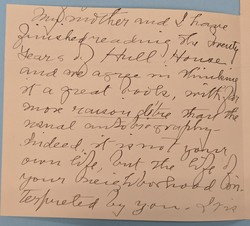 My mother and I have
finished reading the Twenty
Years of Hull House
and we agree in thinking
it a great book, with far
more raison d'être than the
usual autobiography.
Indeed, it is not your
own life, but the life of
your neighborhood in-
terpreted by you.